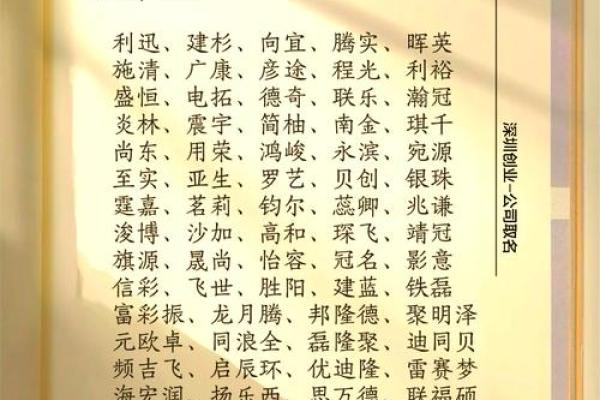 利迅、建杉、向宜、腾实、晖英
施清、广康、彦途、程光、利裕
盛恒、电拓、德奇、联乐、瀚冠
炎林、震宇、简柚、南金、琪千
尚东、用荣、鸿峻、永滨、宛源
至实、亚生、罗艺、贝创、银珠
霆嘉、茗莉、钧尔、蕊卿、兆谦
浚博、沙加、高和、琛飞、靖冠
旗源、晟尚、怡容、冠名、影意
信彩、飞世、胜阳、建蓝、铁磊
富彩振、龙月腾、邦隆德、聚明泽
元欧卓、同浪全、磊隆聚、迪同贝
频吉飞、启辰环、优迪隆、雷赛梦
海宏润、扬乐西、思万德、联福硕
深圳创业-公司取名